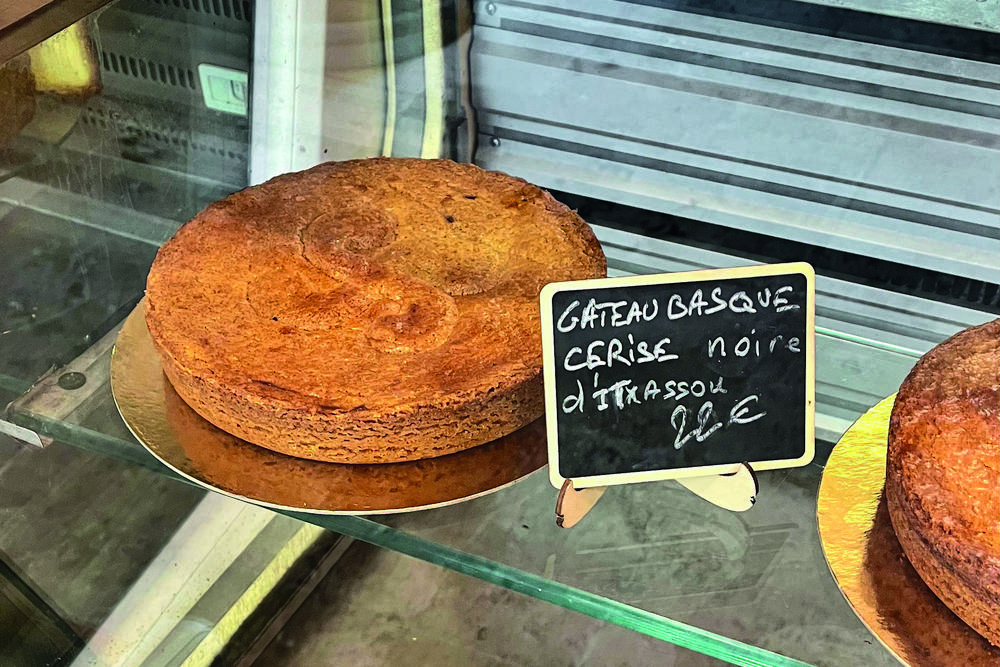 GÂTEAU BASQUE
CERISE noire
d'ITXASSOU
22 €